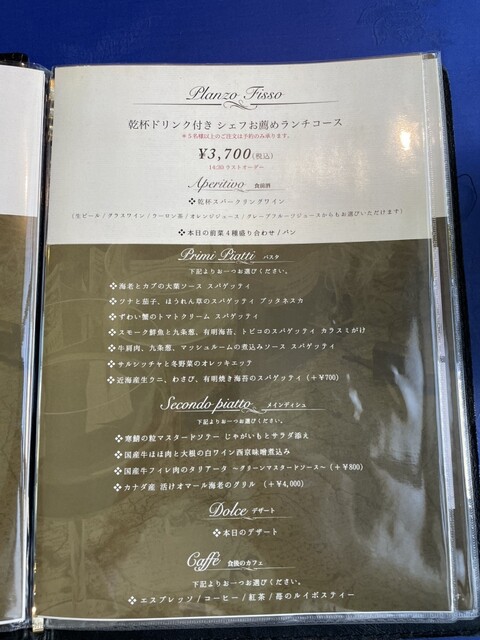 Planzo Fisso
乾杯ドリンク付き シェフお薦めランチコース
＊5名様以上のご注文は予約のみ承ります。
¥3,700(税込)
14:30 ラストオーダー
Aperitivo 食前酒
❖乾杯スパークリングワイン
(生ビール / グラスワイン / ウーロン茶 / オレンジジュース / グレープフルーツジュースからもお選びいただけます)
❖本日の前菜4種盛り合わせ / パン
Primi Piatti パスタ
下記よりお一つお選びください。
❖海老とカブの大葉ソース スパゲッティ
❖ツナと茄子、ほうれん草のスパゲッティ プッタネスカ
❖ずわい蟹のトマトクリーム スパゲッティ
❖スモーク鮮魚と九条葱、有明海苔、トビコのスパゲッティ カラスミがけ
❖牛肩肉、九条葱、マッシュルームの煮込みソース スパゲッティ
❖サルシッチャと冬野菜のオレッキエッテ
❖近海産生ウニ、わさび、有明焼き海苔のスパゲッティ (+¥700)
Secondo piatto メインディシュ
下記よりお一つお選びください。
❖寒鯖の粒マスタードソテー じゃがいもとサラダ添え
❖国産牛ほほ肉と大根の白ワイン西京味噌煮込み
❖国産牛フィレ肉のタリアータ 〜グリーンマスタードソース〜 (+¥800)
❖カナダ産 活けオマール海老のグリル (+¥4,000)
Dolce デザート
❖本日のデザート
Caffé 食後のカフェ
下記よりお一つお選びください。
❖エスプレッソ / コーヒー / 紅茶 / 苺のルイボスティー